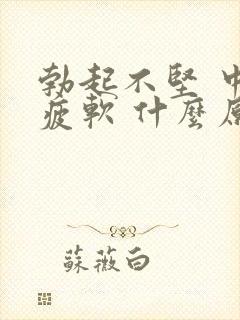 勃起不堅 中
疲軟 什麼原
蘇薇白